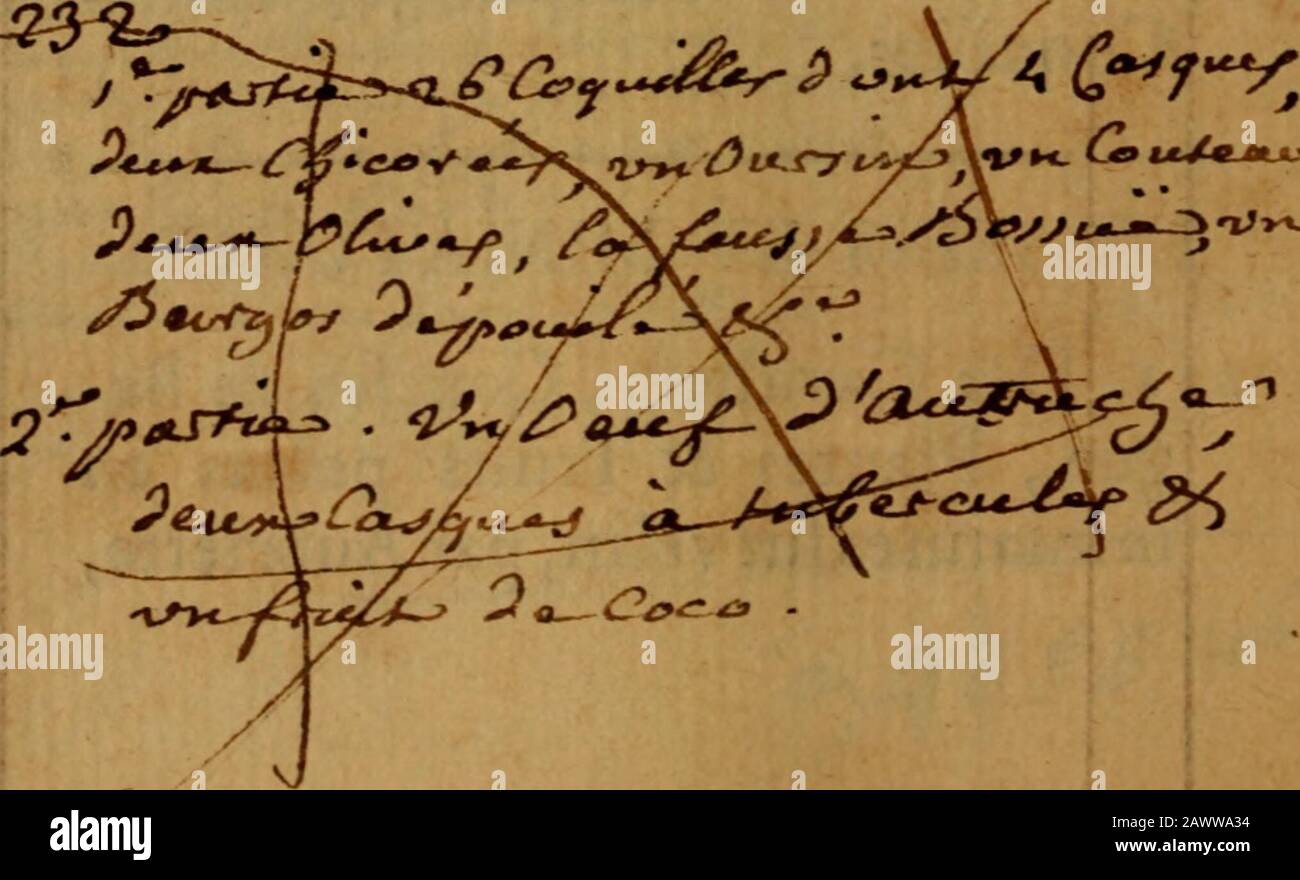 232
1.re partie 26 Coquilles dont 4 Casques,
deux Chicorées, un Oursin, un Couteau
deux Olives, la fausse Bossuë, un
Burgos dépouillé &.a
2.e partie. Un Oeuf d'Autruche,
deux Casques à tubercules &
un fruit de Coco.
a
alamy
alamy
Image ID: 2AWWA34
www.alamy.com